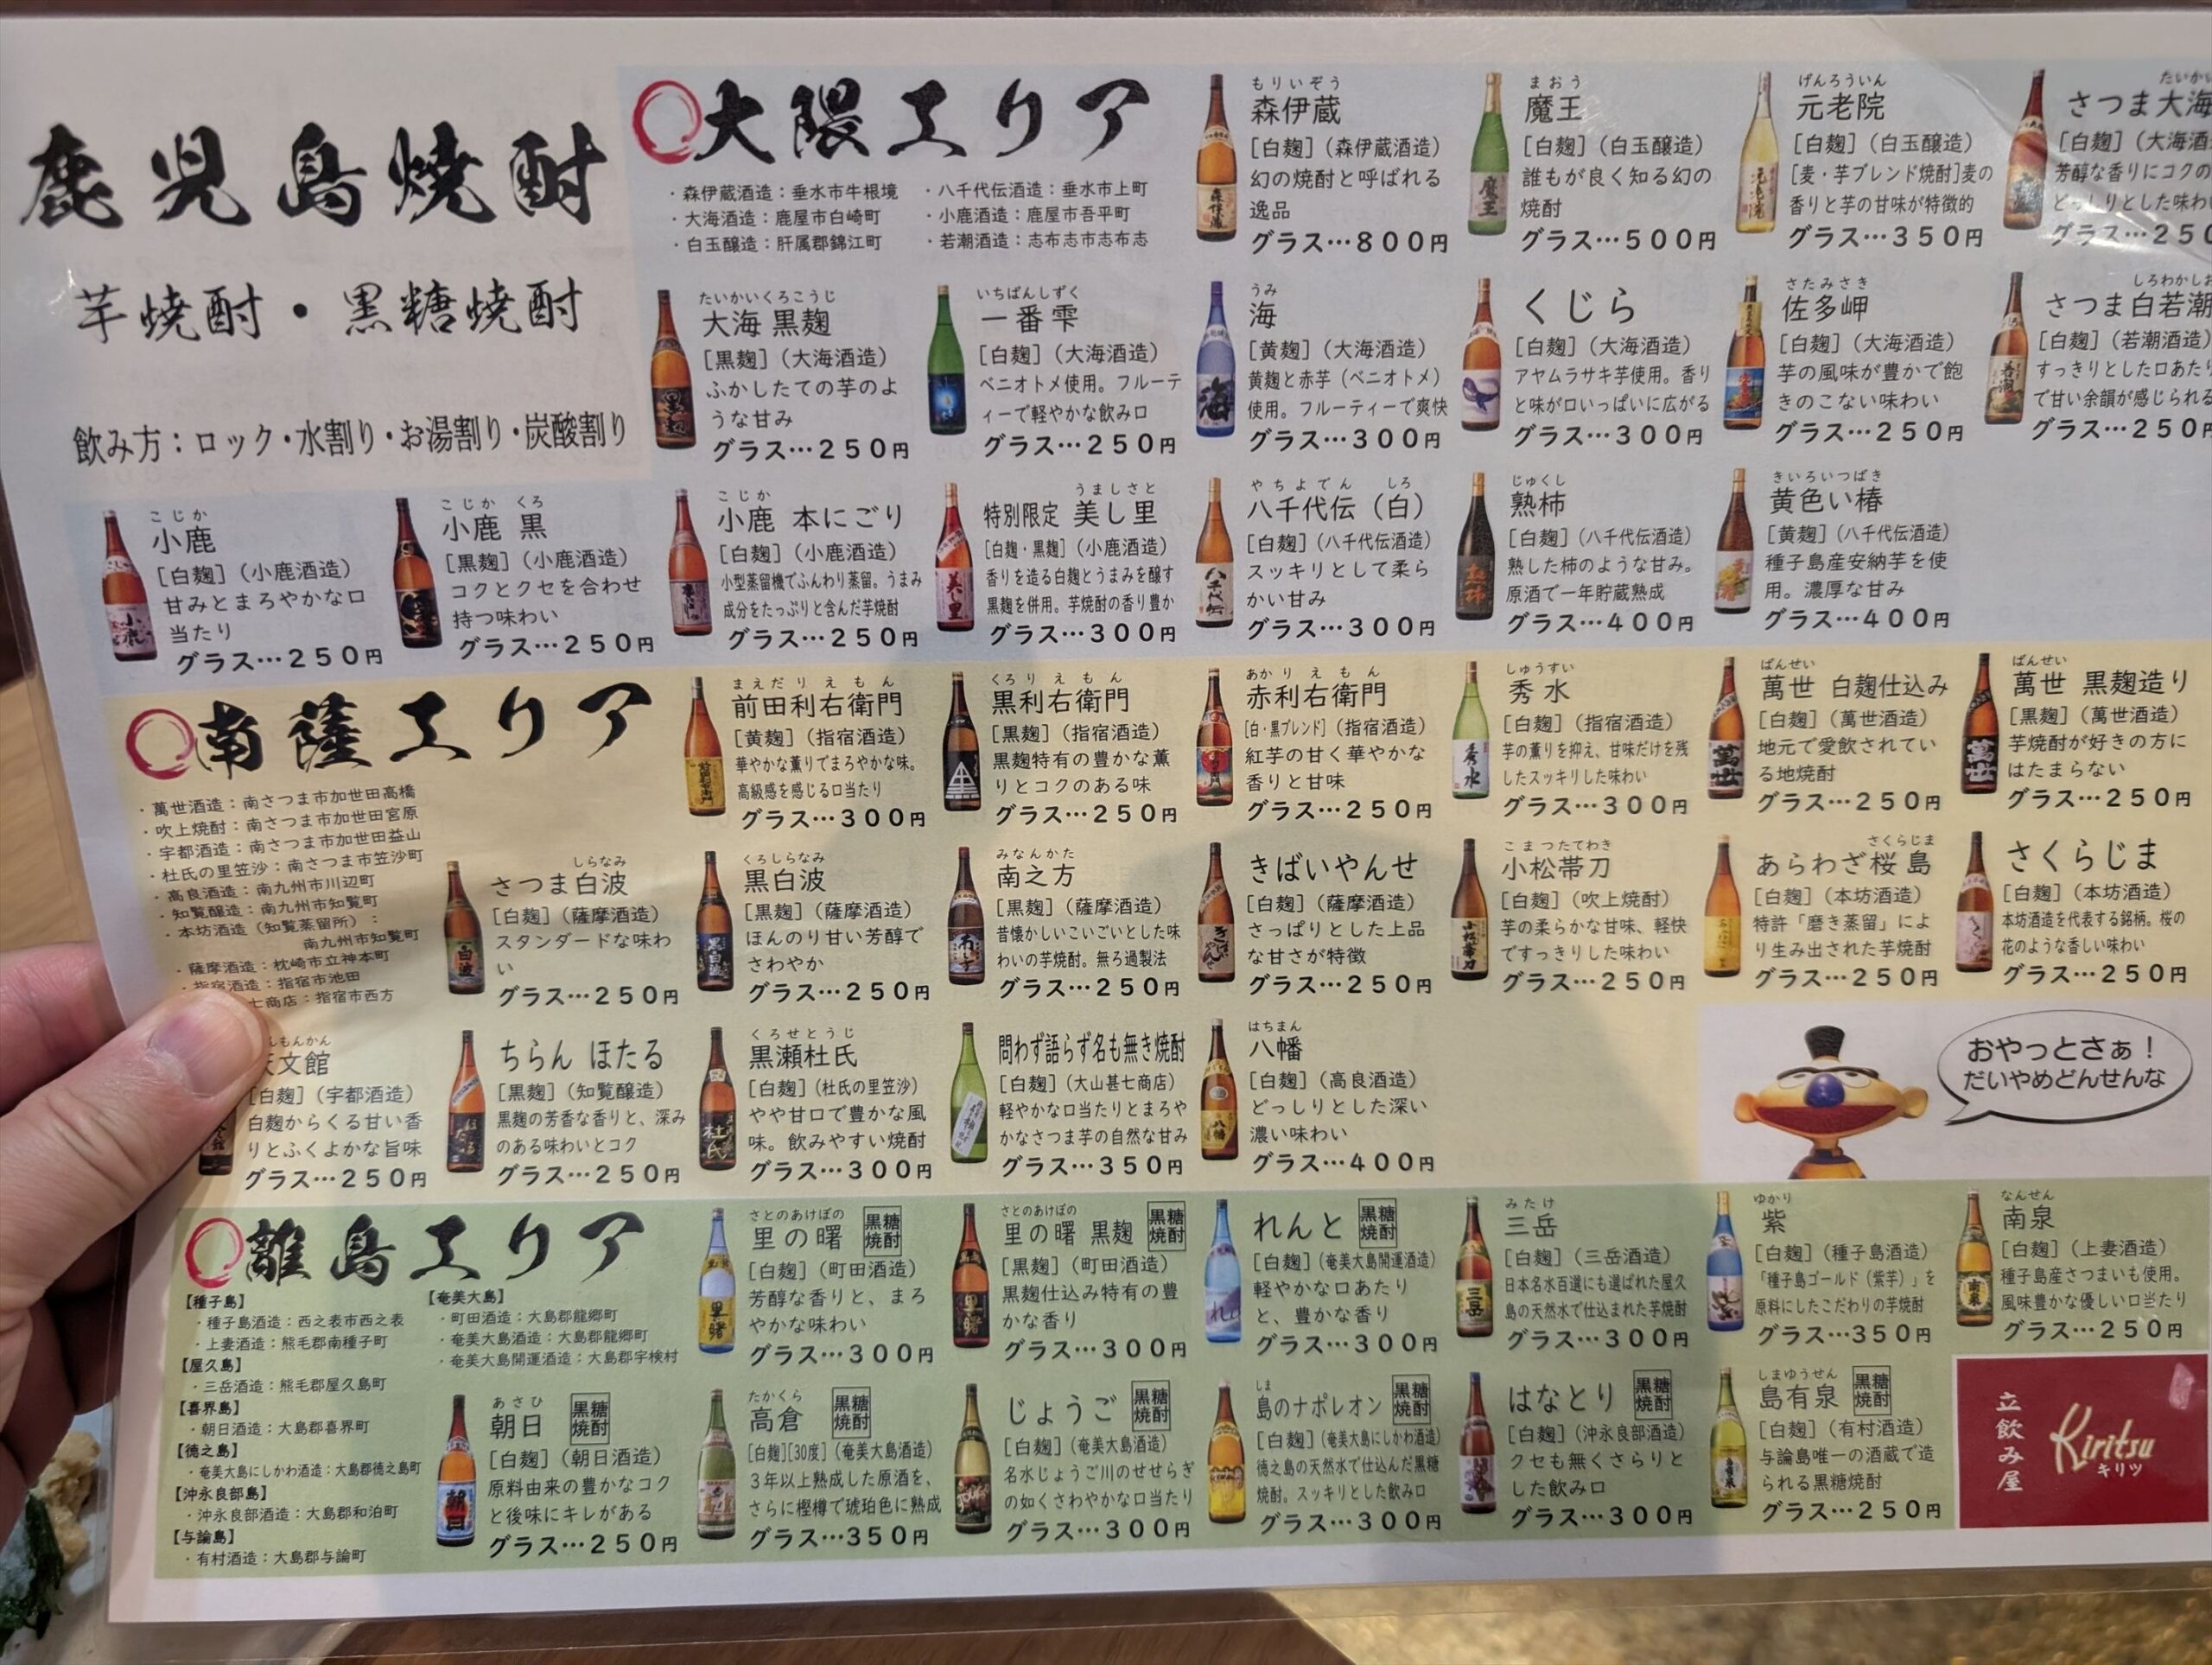 鹿児島焼酎
芋焼酎・黒糖焼酎
飲み方：ロック・水割り・お湯割り・炭酸割り
大隅エリア
・森伊蔵酒造：垂水市牛根境
・大海酒造：鹿屋市白崎町
・白玉醸造：肝属郡錦江町
・八千代伝酒造：垂水市上町
・小鹿酒造：鹿屋市吾平町
・若潮酒造：志布志市志布志
もりいぞう
森伊蔵
［白麹］（森伊蔵酒造）
幻の焼酎と呼ばれる
逸品
グラス…８００円
まおう
魔王
［白麹］（白玉醸造）
誰もが良く知る幻の
焼酎
グラス…５００円
げんろういん
元老院
［白麹］（白玉醸造）
［麦・芋ブレンド焼酎］麦の
香りと芋の甘味が特徴的
グラス…３５０円
たいかい
さつま大海
［白麹］（大海酒
芳醇な香りにコクの
どっしりとした味わい
グラス…２５０
たいかいくろこうじ
大海 黒麹
［黒麹］（大海酒造）
ふかしたての芋のよ
うな甘み
グラス…２５０円
いちばんしずく
一番雫
［白麹］（大海酒造）
ベニオトメ使用。フルーテ
ィーで軽やかな飲み口
グラス…２５０円
うみ
海
［黄麹］（大海酒造）
黄麹と赤芋（ベニオトメ）
使用。フルーティーで爽快
グラス…３００円
くじら
［白麹］（大海酒造）
アヤムラサキ芋使用。香り
と味が口いっぱいに広がる
グラス…３００円
さたみさき
佐多岬
［白麹］（大海酒造）
芋の風味が豊かで飽
きのこない味わい
グラス…２５０円
しろわかしお
さつま白若潮
［白麹］（若潮酒造）
すっきりとした口あたり
で甘い余韻が感じられる
グラス…２５０円
こじか
小鹿
［白麹］（小鹿酒造）
甘みとまろやかな口
当たり
グラス…２５０円
こじか くろ
小鹿 黒
［黒麹］（小鹿酒造）
コクとクセを合わせ
持つ味わい
グラス…２５０円
こじか
小鹿 本にごり
［白麹］（小鹿酒造）
小型蒸留機でふんわり蒸留。うまみ
成分をたっぷりと含んだ芋焼酎
グラス…２５０円
うましさと
特別限定 美し里
［白麹・黒麹］（小鹿酒造）
香りを造る白麹とうまみを醸す
黒麹を併用。芋焼酎の香り豊か
グラス…３００円
やちよでん しろ
八千代伝（白）
［白麹］（八千代伝酒造）
スッキリとして柔ら
かい甘み
グラス…３００円
じゅくし
熟柿
［白麹］（八千代伝酒造）
熟した柿のような甘み。
原酒で一年貯蔵熟成
グラス…４００円
きいろいつばき
黄色い椿
［黄麹］（八千代伝酒造）
種子島産安納芋を使
用。濃厚な甘み
グラス…４００円
南薩エリア
・萬世酒造：南さつま市加世田高橋
・吹上焼酎：南さつま市加世田宮原
・宇都酒造：南さつま市加世田益山
・杜氏の里笠沙：南さつま市笠沙町
・高良酒造：南九州市川辺町
・知覧醸造：南九州市知覧町
・本坊酒造（知覧蒸留所）：
南九州市知覧町
・薩摩酒造：枕崎市立神本町
・指宿酒造：指宿市池田
七商店：指宿市西方
まえだりえもん
前田利右衛門
［黄麹］（指宿酒造）
華やかな薫りでまろやかな味。
高級感を感じる口当たり
グラス…３００円
くろりえもん
黒利右衛門
［黒麹］（指宿酒造）
黒麹特有の豊かな薫
りとコクのある味
グラス…２５０円
あかりえもん
赤利右衛門
［白・黒ブレンド］（指宿酒造）
紅芋の甘く華やかな
香りと甘味
グラス…２５０円
しゅうすい
秀水
［白麹］（指宿酒造）
芋の薫りを抑え、甘味だけを残
したスッキリした味わい
グラス…３００円
ばんせい
萬世 白麹仕込み
［白麹］（萬世酒造）
地元で愛飲されてい
る地焼酎
グラス…２５０円
ばんせい
萬世 黒麹造り
［黒麹］（萬世酒造）
芋焼酎が好きの方に
はたまらない
グラス…２５０円
しらなみ
さつま白波
［白麹］（薩摩酒造）
スタンダードな味わ
い
グラス…２５０円
くろしらなみ
黒白波
［黒麹］（薩摩酒造）
ほんのり甘い芳醇で
さわやか
グラス…２５０円
みなんかた
南之方
［黒麹］（薩摩酒造）
昔懐かしいこいごいとした味
わいの芋焼酎。無ろ過製法
グラス…２５０円
きばいやんせ
［白麹］（薩摩酒造）
さっぱりとした上品
な甘さが特徴
グラス…２５０円
こまつたてわき
小松帯刀
［白麹］（吹上焼酎）
芋の柔らかな甘味、軽快
ですっきりした味わい
グラス…２５０円
さくらじま
あらわざ桜島
［白麹］（本坊酒造）
特許「磨き蒸留」によ
り生み出された芋焼酎
グラス…２５０円
さくらじま
［白麹］（本坊酒造）
本坊酒造を代表する銘柄。桜の
花のような香しい味わい
グラス…２５０円
んもんかん
文館
［白麹］（宇都酒造）
白麹からくる甘い香
りとふくよかな旨味
グラス…２５０円
ちらん ほたる
［黒麹］（知覧醸造）
黒麹の芳香な香りと、深み
のある味わいとコク
グラス…２５０円
くろせとうじ
黒瀬杜氏
［白麹］（杜氏の里笠沙）
やや甘口で豊かな風
味。飲みやすい焼酎
グラス…３００円
問わず語らず名も無き焼酎
［白麹］（大山甚七商店）
軽やかな口当たりとまろや
かなさつま芋の自然な甘み
グラス…３５０円
はちまん
八幡
［白麹］（高良酒造）
どっしりとした深い
濃い味わい
グラス…４００円
おやっとさぁ！
だいやめどんせんな
離島エリア
【種子島】
・種子島酒造：西之表市西之表
・上妻酒造：熊毛郡南種子町
【屋久島】
・三岳酒造：熊毛郡屋久島町
【喜界島】
・朝日酒造：大島郡喜界町
【徳之島】
・奄美大島にしかわ酒造：大島郡徳之島町
【沖永良部島】
・沖永良部酒造：大島郡和泊町
【与論島】
・有村酒造：大島郡与論町
【奄美大島】
・町田酒造：大島郡龍郷町
・奄美大島酒造：大島郡龍郷町
・奄美大島開運酒造：大島郡宇検村
さとのあけぼの
里の曙 黒糖焼酎
［白麹］（町田酒造）
芳醇な香りと、まろ
やかな味わい
グラス…３００円
さとのあけぼの
里の曙 黒麹 黒糖焼酎
［黒麹］（町田酒造）
黒麹仕込み特有の豊
かな香り
グラス…３００円
れんと 黒糖焼酎
［白麹］（奄美大島開運酒造）
軽やかな口あたり
と、豊かな香り
グラス…３００円
みたけ
三岳
［白麹］（三岳酒造）
日本名水百選にも選ばれた屋久
島の天然水で仕込まれた芋焼酎
グラス…３００円
ゆかり
紫
［白麹］（種子島酒造）
「種子島ゴールド（紫芋）」を
原料にしたこだわりの芋焼酎
グラス…３５０円
なんせん
南泉
［白麹］（上妻酒造）
種子島産さつまいも使用。
風味豊かな優しい口当たり
グラス…２５０円
あさひ
朝日 黒糖焼酎
［白麹］（朝日酒造）
原料由来の豊かなコク
と後味にキレがある
グラス…２５０円
たかくら
高倉 黒糖焼酎
［白麹］［30度］（奄美大島酒造）
３年以上熟成した原酒を、
さらに樫樽で琥珀色に熟成
グラス…３５０円
じょうご 黒糖焼酎
［白麹］（奄美大島酒造）
名水じょうご川のせせらぎ
の如くさわやかな口当たり
グラス…３００円
しま
島のナポレオン 黒糖焼酎
［白麹］（奄美大島にしかわ酒造）
徳之島の天然水で仕込んだ黒糖
焼酎。スッキリとした飲み口
グラス…３００円
はなとり 黒糖焼酎
［白麹］（沖永良部酒造）
クセも無くさらりと
した飲み口
グラス…３００円
しまゆうせん
島有泉 黒糖焼酎
［白麹］（有村酒造）
与論島唯一の酒蔵で造
られる黒糖焼酎
グラス…２５０円
立飲み屋
Kiritsu
キリツ